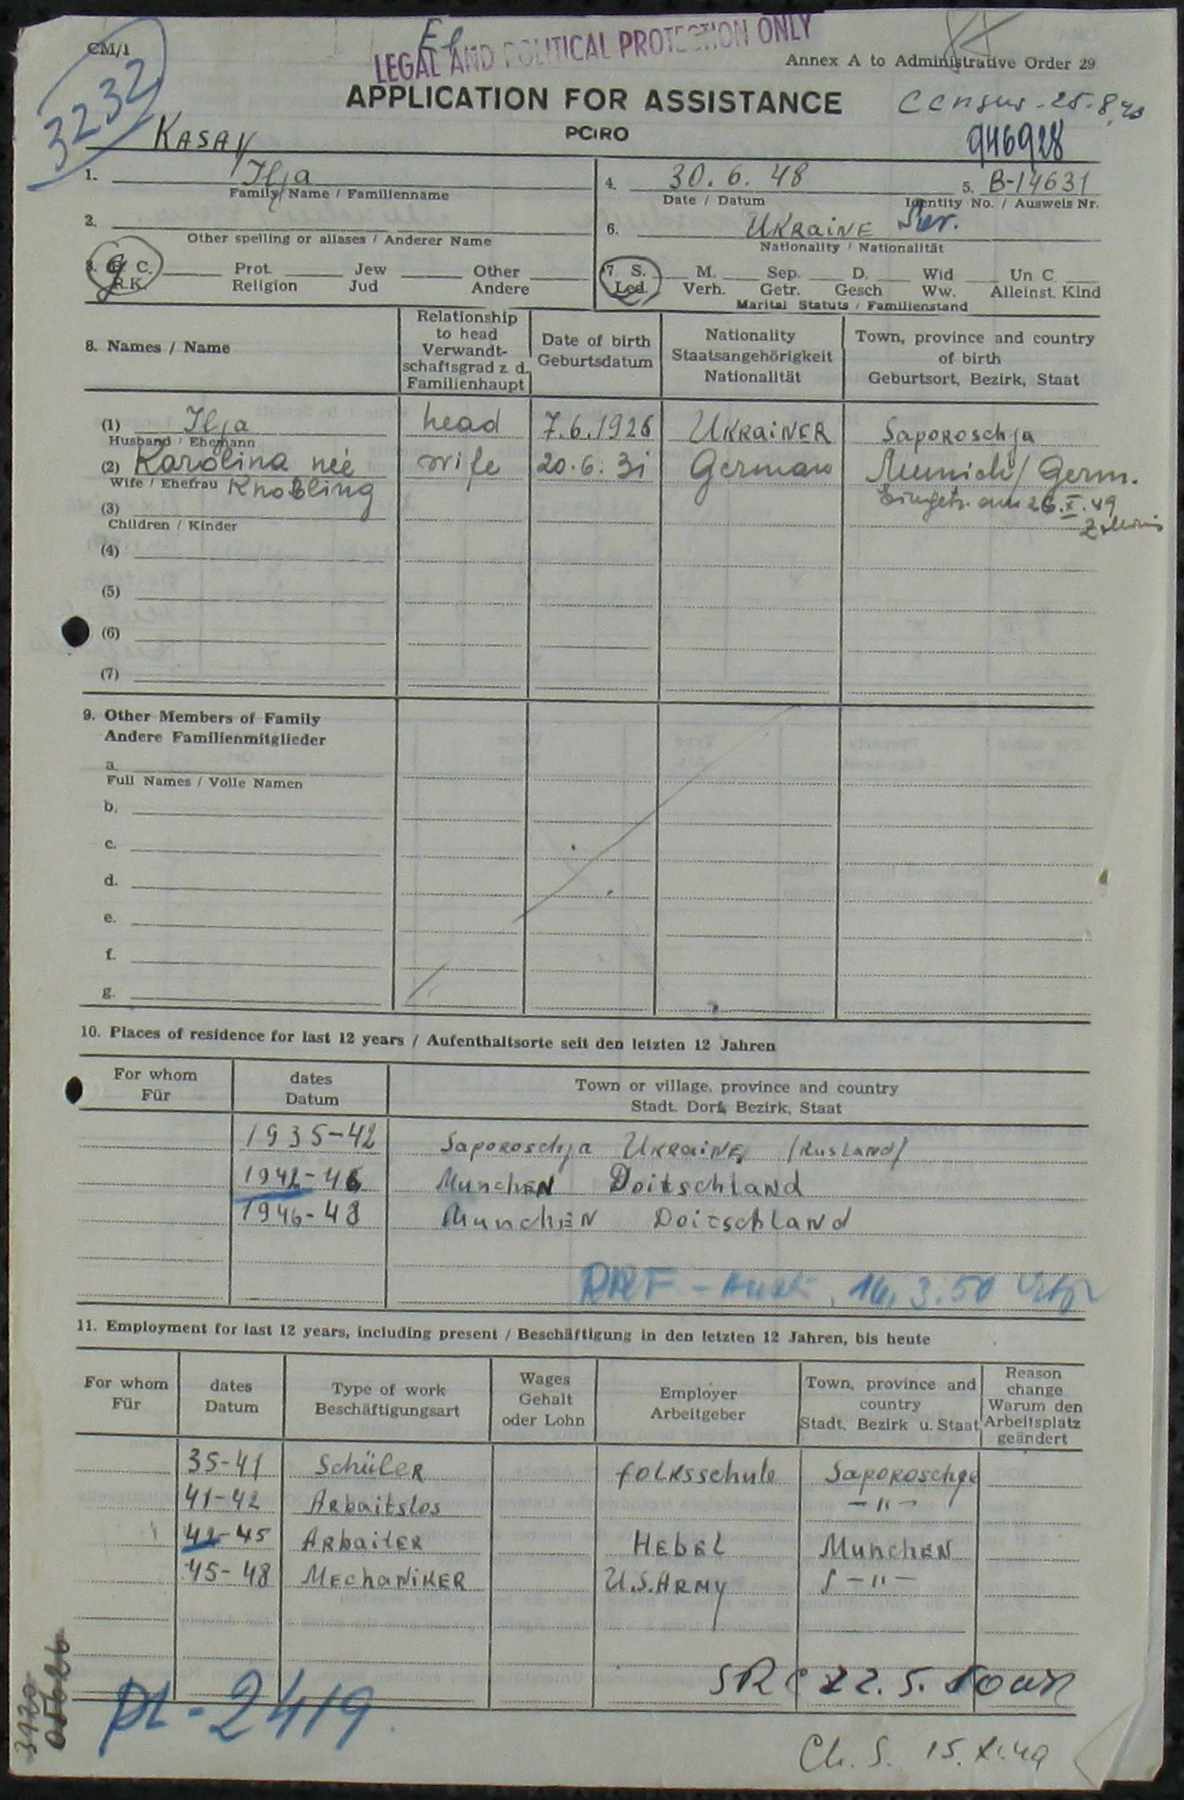 CM/1
LEGAL AND POLITICAL PROTECTION ONLY
Annex A to Administrative Order 29
3232
APPLICATION FOR ASSISTANCE
Census - 25.8.49
PCIRO
946928
KASAY
1. Ilja
Family Name / Familienname
4. 30.6.48
Date / Datum
5. B-14631
Identity No. / Ausweis Nr.
2.
Other spelling or aliases / Anderer Name
6. UKRAINE
Nationality / Nationalität
3. C. Prot. Jew Other
R.K. Religion Jud Andere
7. S. M. Sep. D. Wid Un C
Led. Verh. Getr. Gesch Ww. Alleinst. Kind
Marital Statuts / Familienstand
8. Names / Name
Relationship to head
Verwandt-
schaftsgrad z. d.
Familienhaupt
Date of birth
Geburtsdatum
Nationality
Staatsangehörigkeit
Nationalität
Town, province and country
of birth
Geburtsort, Bezirk, Staat
(1) Ilja head 7.6.1926 UKRAINER Saporoschja
Husband / Ehemann
(2) Karolina neé wife 20.6.31 German Munich / Germ.
Wife / Ehefrau Knoßling
Eingetr. am 26.X.49
(3)
Children / Kinder
(4)
(5)
(6)
(7)
9. Other Members of Family
Andere Familienmitglieder
a.
Full Names / Volle Namen
b.
c.
d.
e.
f.
g.
10. Places of residence for last 12 years / Aufenthaltsorte seit den letzten 12 Jahren
For whom
Für
dates
Datum
Town or village, province and country
Stadt. Dorf, Bezirk, Staat
1935-42 Saporoschja UKRAINE (Rusland)
1942-46 Munchen Doitschland
1946-48 Munchen Doitschland
16.3.50
11. Employment for last 12 years, including present / Beschäftigung in den letzten 12 Jahren, bis heute
For whom
Für
dates
Datum
Type of work
Beschäftigungsart
Wages
Gehalt
oder Lohn
Employer
Arbeitgeber
Town, province and
country
Stadt, Bezirk u. Staat
Reason
change
Warum den
Arbeitsplatz
geändert
35-41 Schüler folksschule Saporoschje
41-42 Arbaitslos -"-
42-45 Arbaiter Hebel Munchen
45-48 Mechaniker U.S. ARMY -"-
22.5.50
DL-2419
Ch. S. 15.X.49